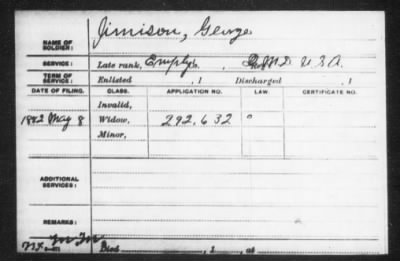 NAME OF SOLDIER: Jimison, George
SERVICE: Late rank, Q.M.D. U.S.A.
TERM OF SERVICE: Enlisted , 1 Discharged , 1
DATE OF FILING. CLASS. APPLICATION NO. LAW. CERTIFICATE NO.
Invalid,
1882 May 8 Widow, 292,632
Minor,
ADDITIONAL SERVICES:
REMARKS:
Died , 1 , at